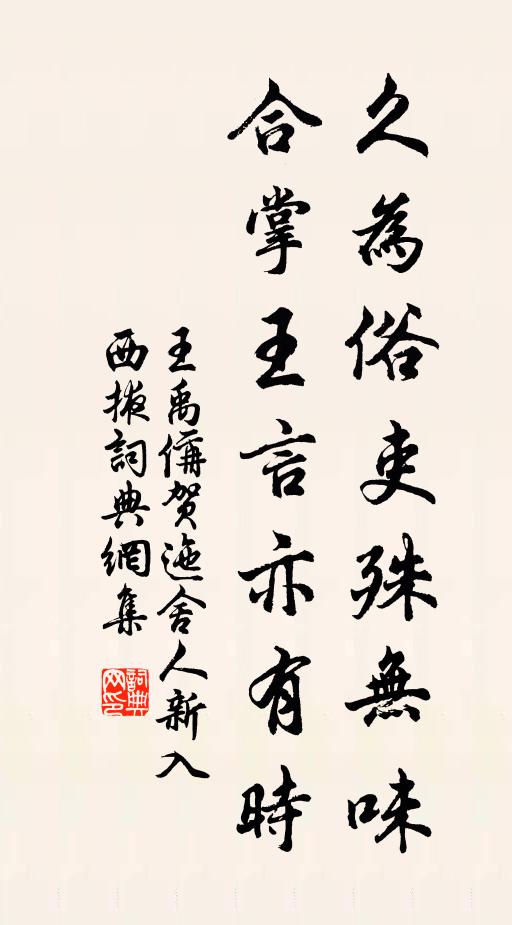 久為俗吏殊無味
合掌王言亦有時
王禹偁賀迤舍人新入
西掖詞典網集
詞典网印